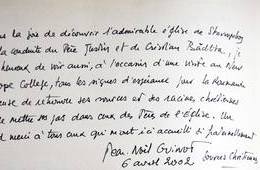 la joie de découvrir l'admirable église de Stavropoleos
la conduite du Père Justin et de Cristian Bădiliță, je
heureux de voir aussi, à l'occasion d'une visite au New
Europe College, tous les signes d'espérance pour la Roumanie
de retrouver ses sources et ses racines chrétiennes
mettre ses pas dans ceux des Pères de l'Église. Un
merci à tous ceux qui m'ont ici accueilli si fraternellement
Jean-Noël Guinot
6 avril 2002 Sources Chrétiennes